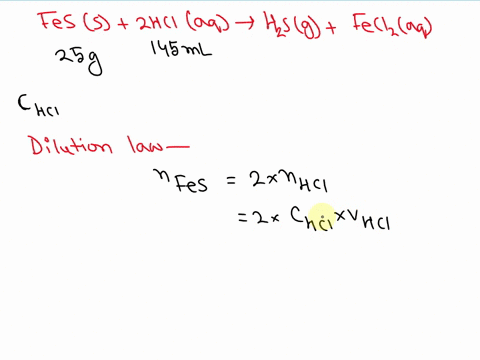 FeS(s) + 2HCl (aq) → H2S(g) + FeCl2(aq)
25g 145mL
CHCl
Dilution law—
nFeS = 2×nHCl
= 2× CHCl×VHCl